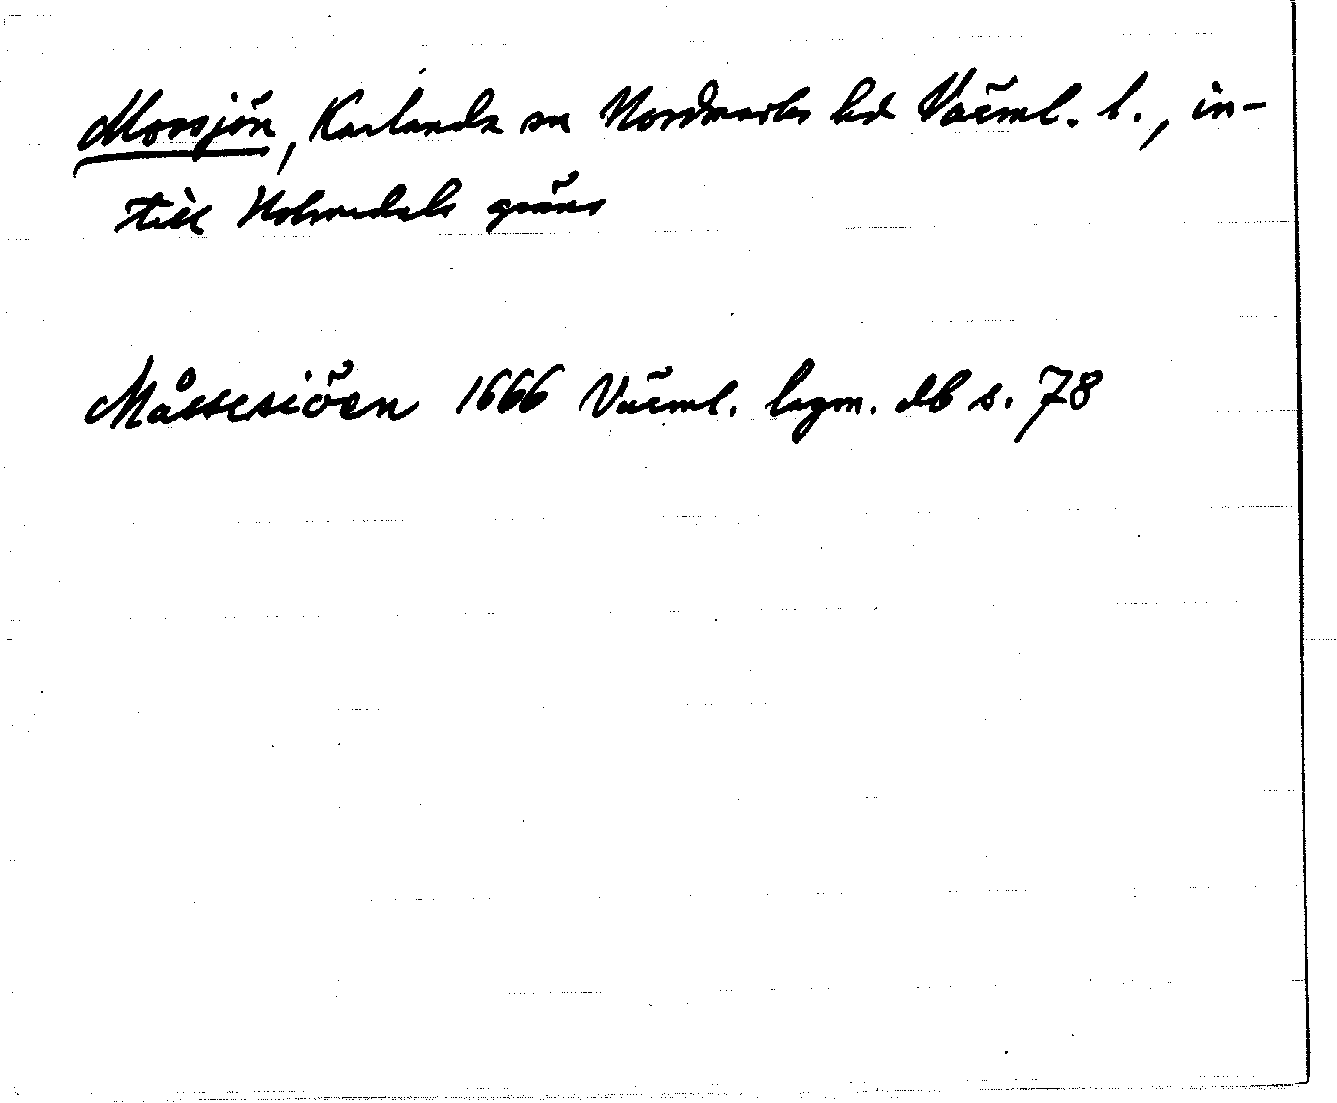 Mossjön, Karlanda sn Nordmarks hd Värml. l., in-
till Holmedals gräns
Måssesiöen 1666 Värml. lagm. db s. 78